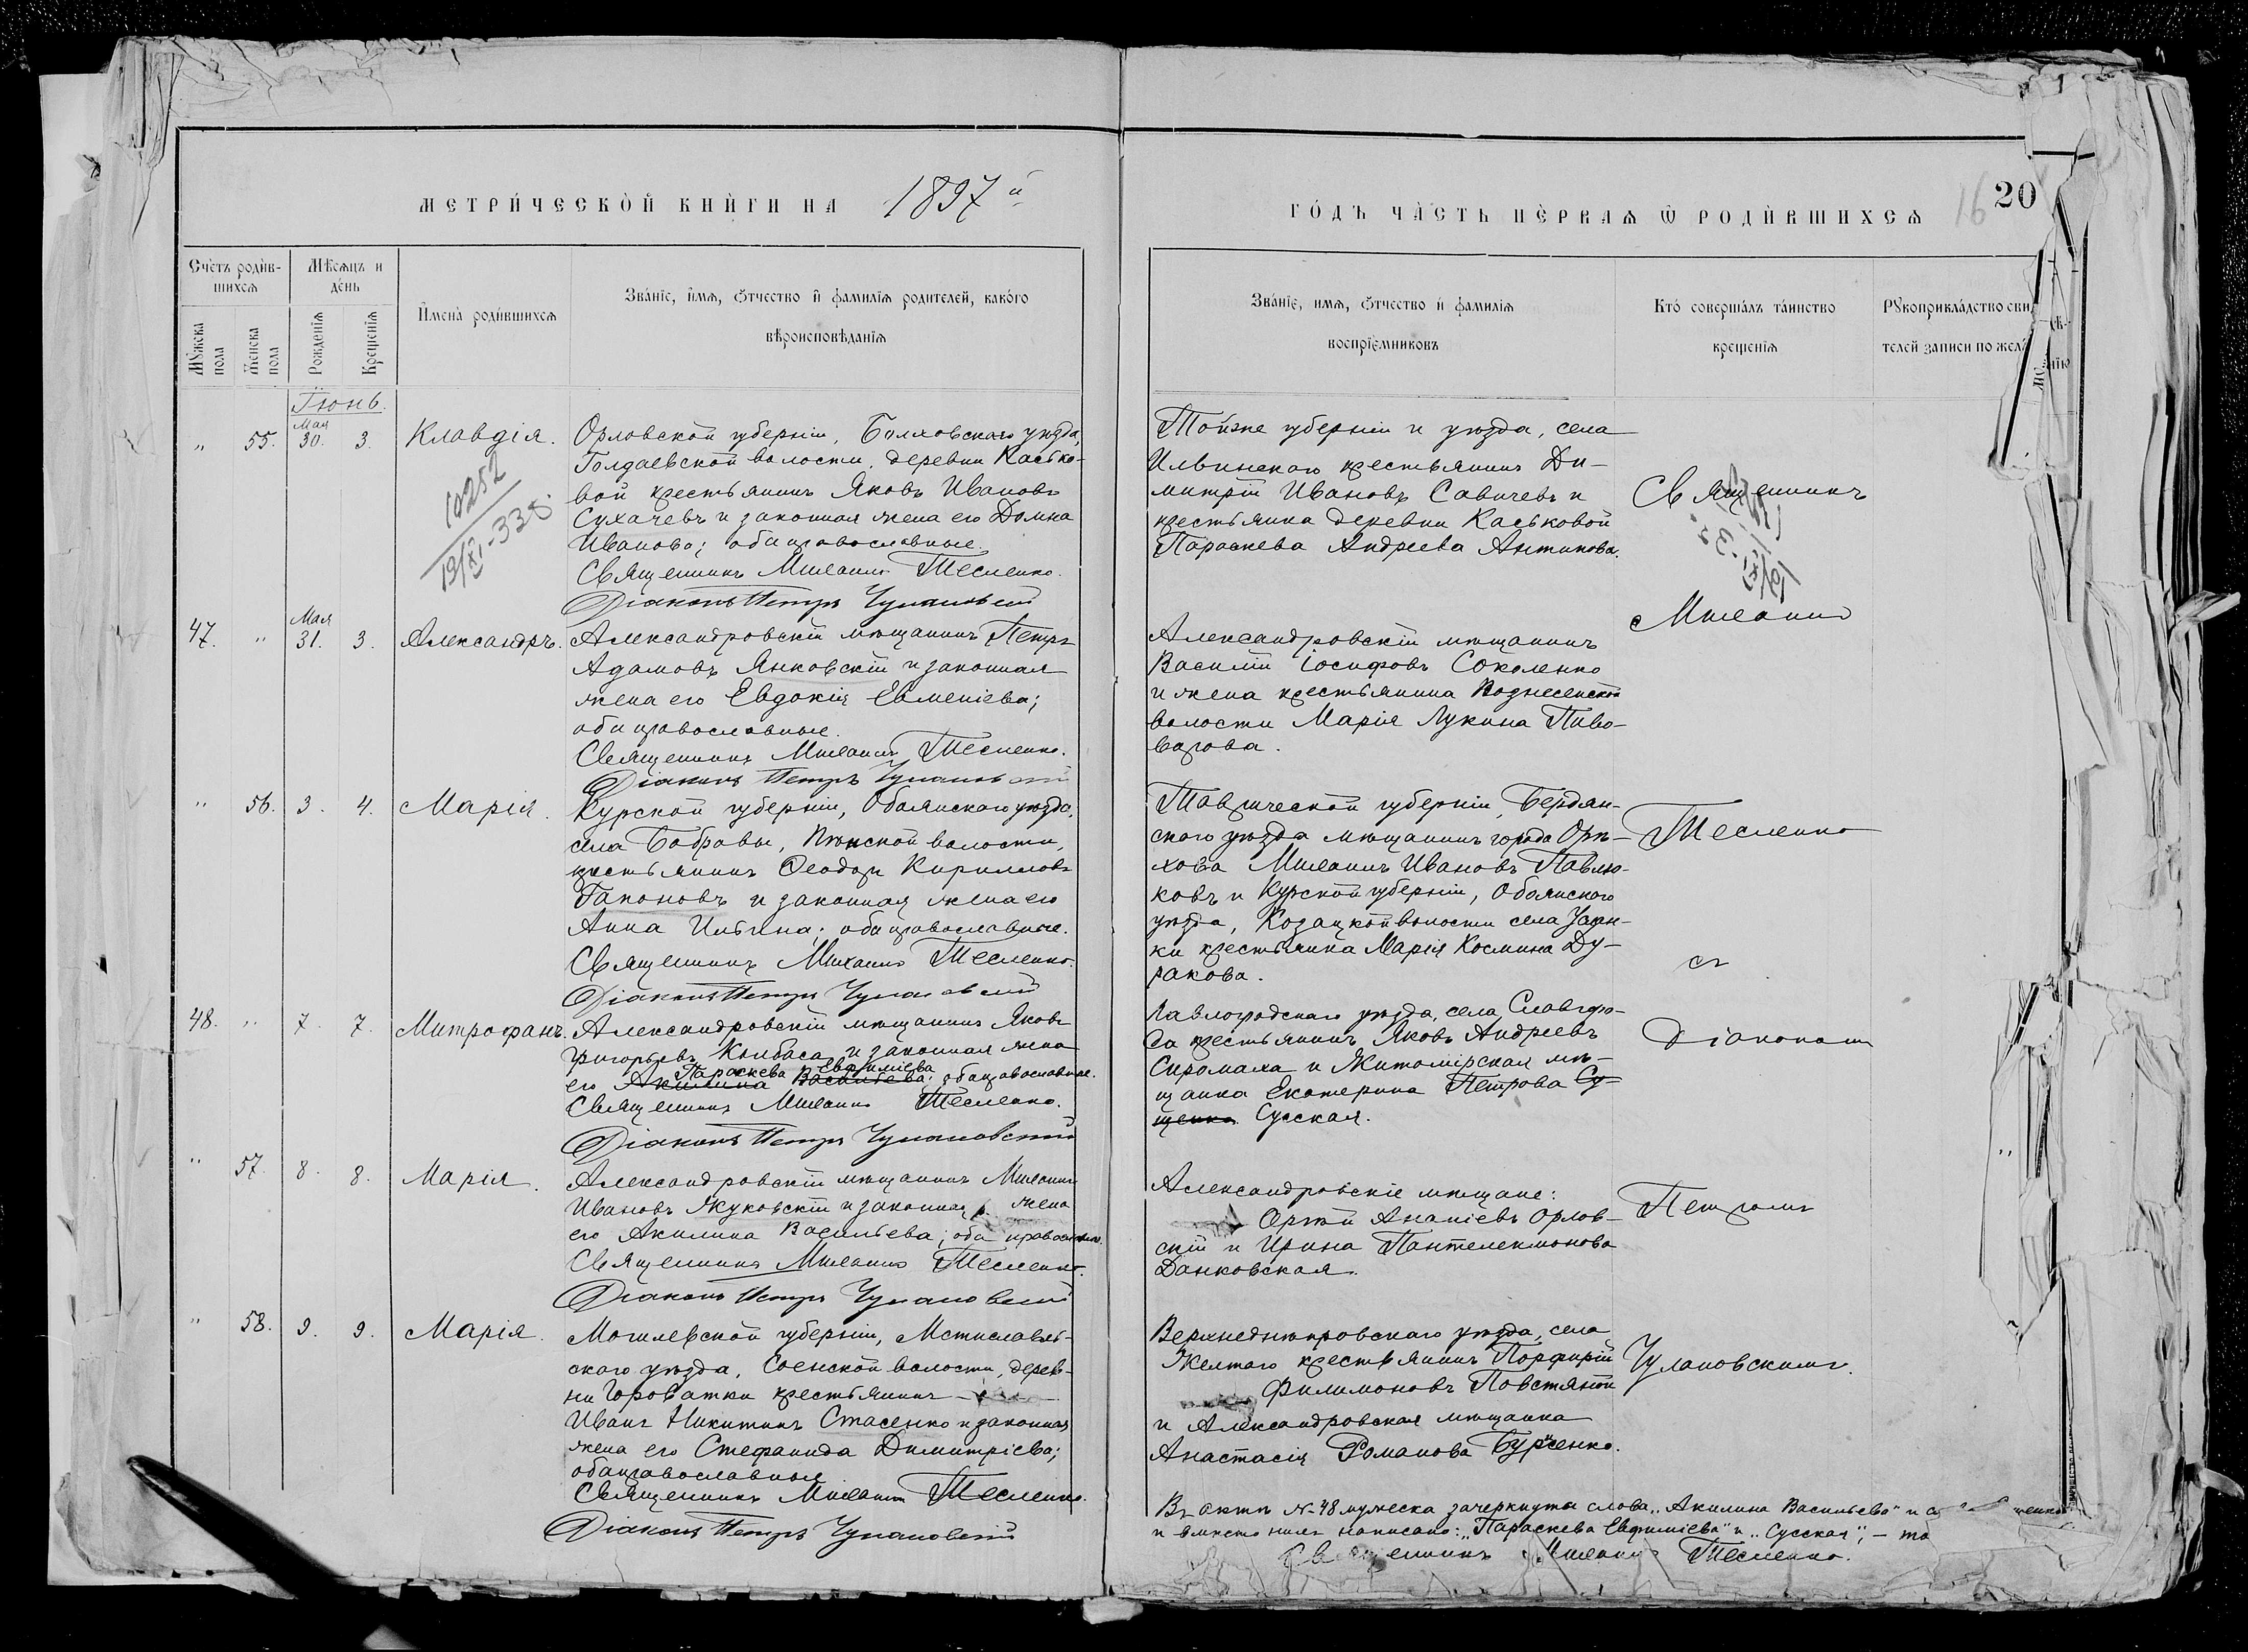 МЕТРИ́ЧЕСКОЙ КНИ́ГИ НА 1897й
ГО́ДЪ ЧА́СТЬ ПЕ́РВАѦ Ѡ РОДИ́ВШИХСѦ
16 20
Сче́тъ роди́в-
шихсѧ
Мѣсѧцъ и
де́нь
И́мена̀ роди́вшихсѧ
Зва́нїе, и́мѧ, ѻтчество и фамилїѧ родителей, како́го
вѣроисповѣданїѧ
Мꙋжска
пола
Женска
пола
Рожденїѧ
Крещенїѧ
Зва́нїе, имѧ, ѻтчество и фамилїѧ
воспрїемниковъ
Кто́ соверша́лъ та́инство
крещенїѧ
Рꙋкоприкла́дство сви
телей записи по жел
Іюнь.
" 55. Мая 30. 3. Клавдія.
10252
19/XI-338
Орловской губерніи, Болховскаго уѣзда,
Голдаевской волости, деревни Касько-
вой крестьянинъ Яковъ Ивановъ
Сухачевъ и законная жена его Домна
Иванова; оба православные.
Священникъ Михаилъ Тесленко.
Діаконъ Петръ Чулановскій
Тойже губерніи и уѣзда, села
Ильинскаго крестьянинъ Ди-
митрій Ивановъ Савичевъ и
крестьянка деревни Каськовой
Параскева Андреева Антипова.
Священникъ
Михаилъ
47. " Мая 31. 3. Александръ.
Александровскій мѣщанинъ Петръ
Адамовъ Янковскій и законная
жена его Евдокія Евменіева;
оба православные.
Священникъ Михаилъ Тесленко.
Діаконъ Петръ Чулановскій
Александровскій мѣщанинъ
Василій Іосифовъ Соколенко
и жена крестьянина Вознесенской
волости Марія Лукина Пиво-
варова.
" 56. 3. 4. Марія.
Курской губерніи, Обоянскаго уѣзда,
села Бобравы, Пѣнской волости,
крестьянинъ Ѳеодоръ Кирилловъ
Гапоновъ и законная жена его
Анна Ильина; оба православные.
Священникъ Михаилъ Тесленко.
Діаконъ Петръ Чулановскій
Таврической губерніи, Бердян-
скаго уѣзда мѣщанинъ города Орѣ-
хова Михаилъ Ивановъ Павлю-
ковъ и Курской губерніи, Обоянскаго
уѣзда, Козацкой волости села
ки крестьянка Марія Космина Ду-
ракова.
Тесленко
съ
48. " 7. 7. Митрофанъ.
Александровскій мѣщанинъ Яковъ
Григорьевъ Колбаса и законная жена
Параскева Евфиміева
его Акилина Васильева; оба православные.
Священникъ Михаилъ Тесленко.
Діаконъ Петръ Чулановскій
Павлоградскаго уѣзда, села Славгоро-
да крестьянинъ Яковъ Андреевъ
Сиромаха и Житомірская мѣ-
щанка Екатерина Петрова Су-
щенко Сусская.
Діакономъ
" 57. 8. 8. Марія.
Александровскій мѣщанинъ Михаилъ
Ивановъ Жуковскій и законная жена
его Акилина Васильева; оба православные.
Священникъ Михаилъ Тесленко.
Діаконъ Петръ Чулановскій
Александровскіе мѣщане:
Ананіевъ Орлов-
скій и Ирина Пантелеимонова
Данковская.
Петромъ
" 58. 9. 9. Марія.
Могилевской губерніи, Мстиславль-
скаго уѣзда, Соенской волости, дерев-
ни Гороватки крестьянинъ
Иванъ Никитинъ Стасенко и законная
жена его Стефанида Димитріева;
оба православные.
Священникъ Михаилъ Тесленко.
Діаконъ Петръ Чулановскій
Верхнеднѣпровскаго уѣзда, села
Желтаго крестьянинъ Порфирій
Филимоновъ Повстяной
и Александровская мѣщанка
Анастасія Романова Бурченко.
Чулановскимъ.
Въ актѣ №-48 мужеска зачеркнуты слова „Акилина Васильева" и С щенко
и вмѣсто нихъ написано: „Параскева Евфиміева" и „Сусская", – то
Священникъ Михаилъ Тесленко.